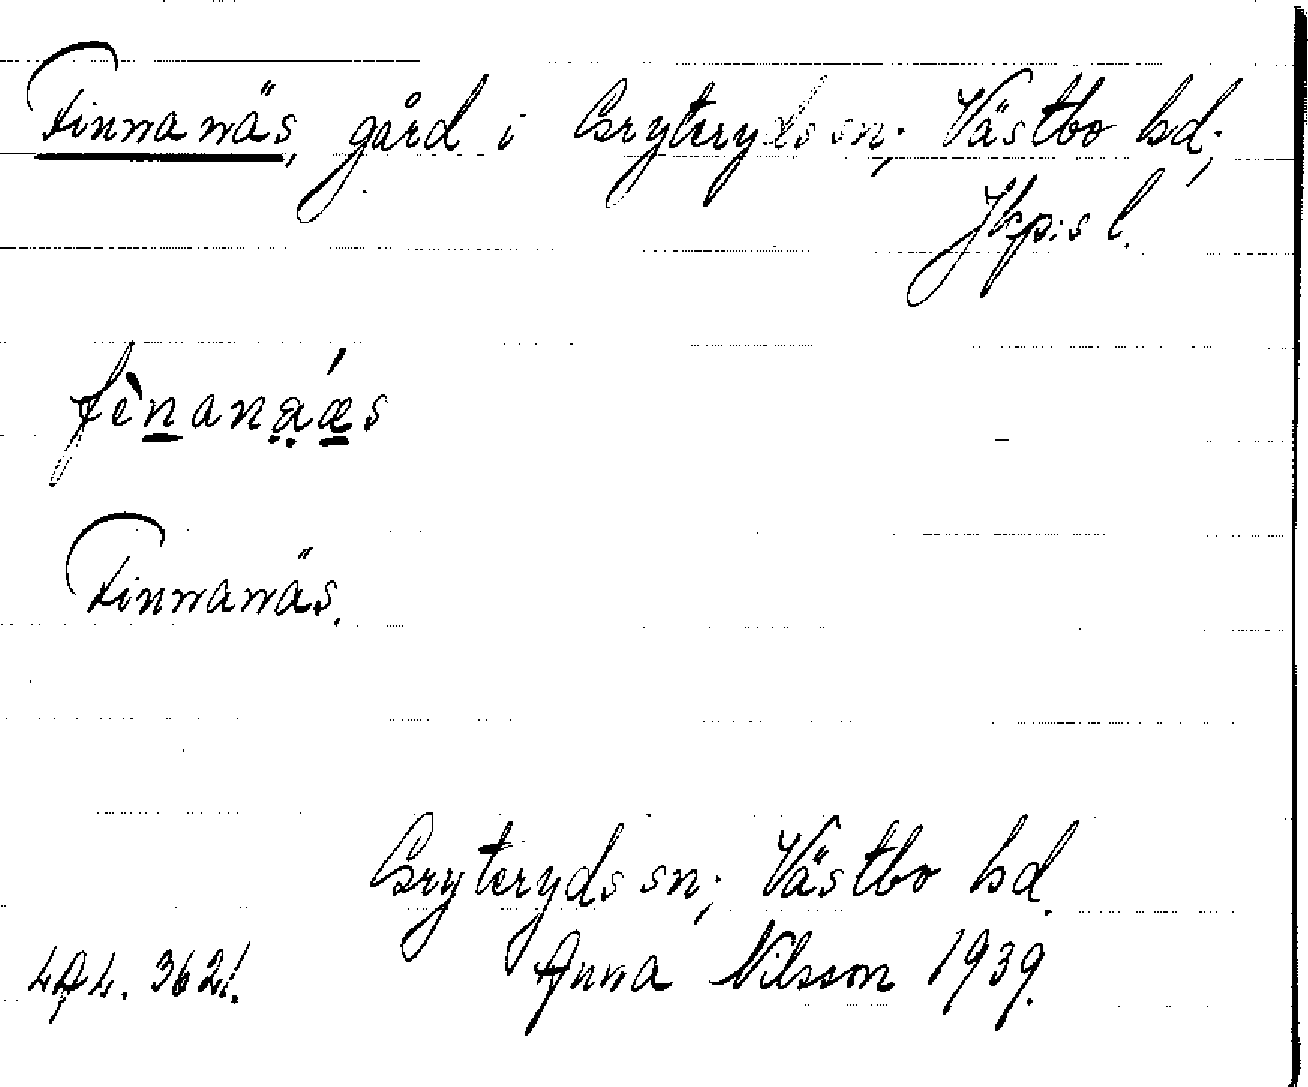 Finnanäs, gård i Gryteryds sn; Västbo hd;
Jkp:s l.
fìnanạǽs
Finnanäs.
Gryteryds sn; Västbo hd.
LAL. 3621. Anna Nilsson 1939.